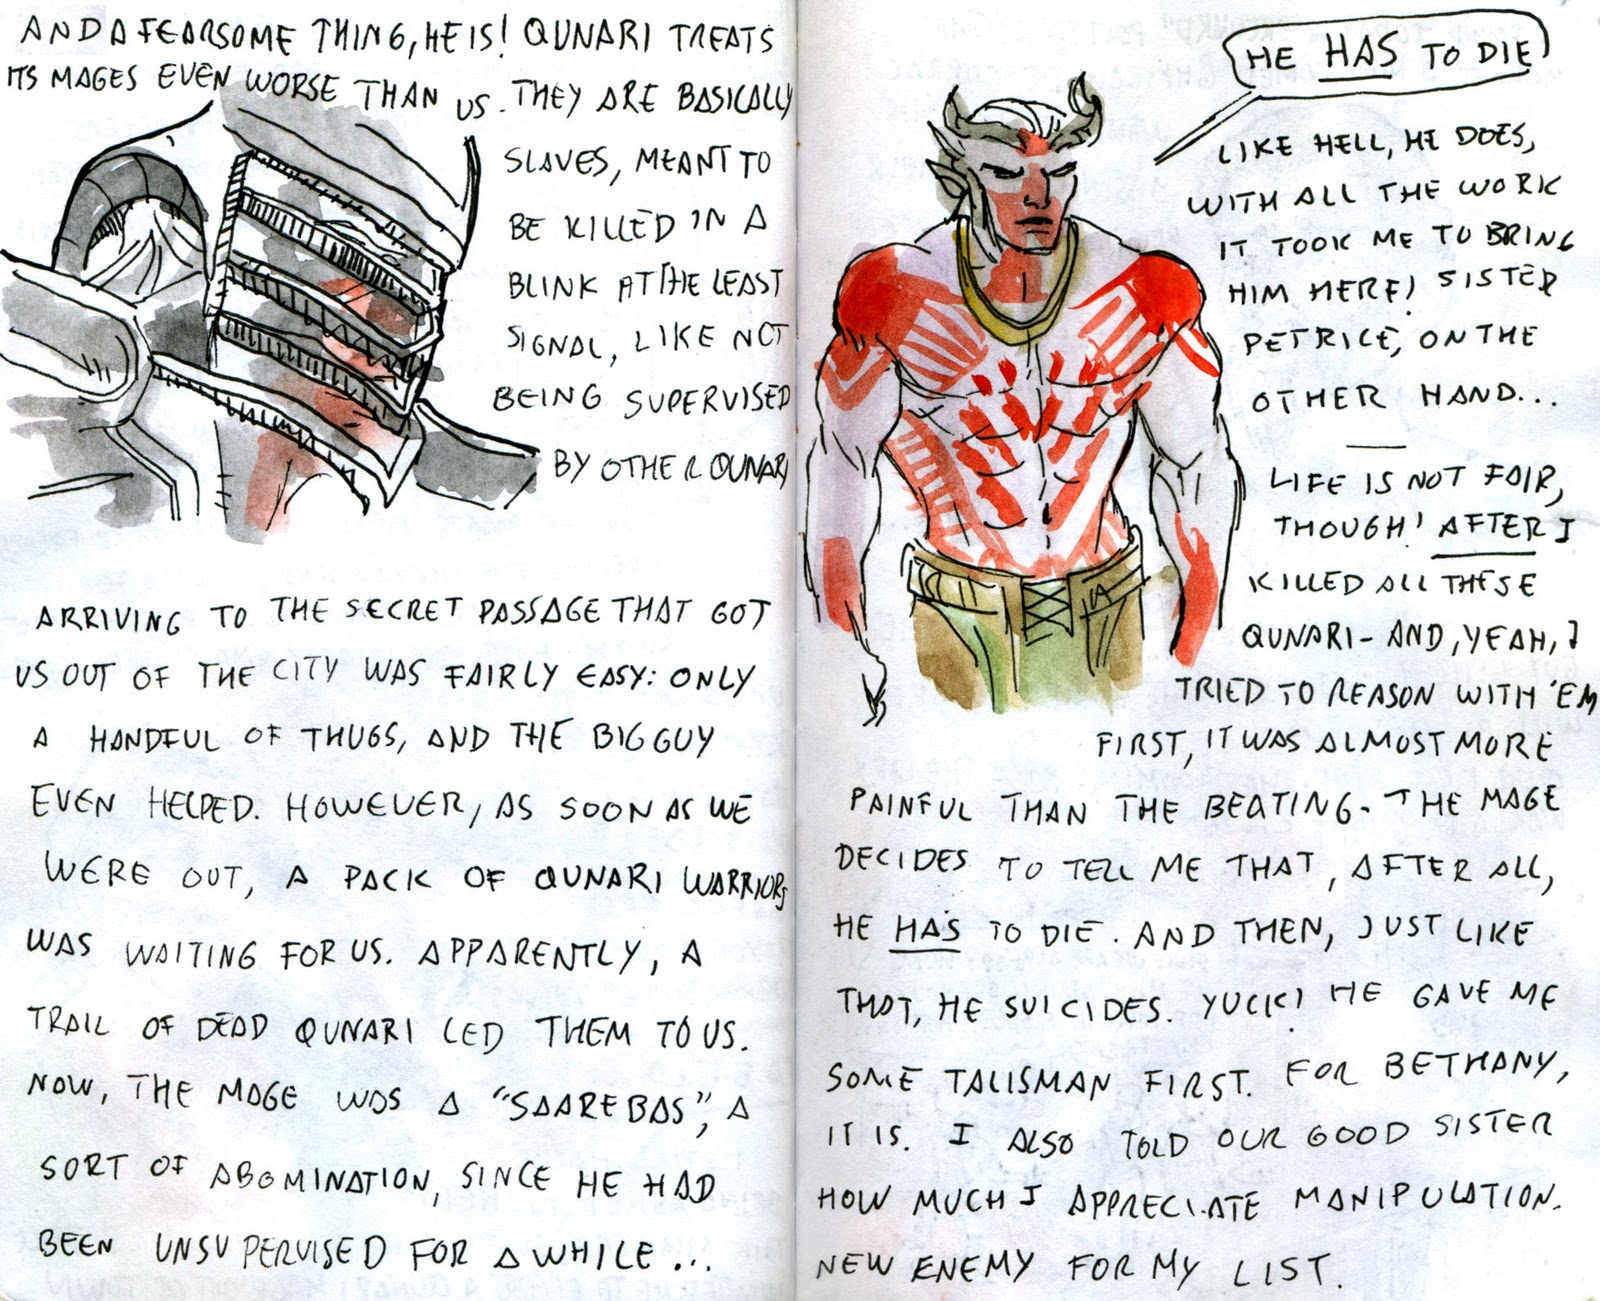 AND A FEARSOME THING, HE IS! QUNARI TREATS
ITS MAGES EVEN WORSE THAN US. THEY ARE BASICALLY
SLAVES, MEANT TO
BE KILLED IN A
BLINK AT THE LEAST
SIGNAL, LIKE NOT
BEING SUPERVISED
BY OTHER QUNARI
ARRIVING TO THE SECRET PASSAGE THAT GOT
US OUT OF THE CITY WAS FAIRLY EASY: ONLY
A HANDFUL OF THUGS, AND THE BIG GUY
EVEN HELPED. HOWEVER, AS SOON AS WE
WERE OUT, A PACK OF QUNARI WARRIORS
WAS WAITING FOR US. APPARENTLY, A
TRAIL OF DEAD QUNARI LED THEM TO US.
NOW, THE MAGE WAS A "SAAREBAS", A
SORT OF ABOMINATION, SINCE HE HAD
BEEN UNSUPERVISED FOR A WHILE...
HE HAS TO DIE
LIKE HELL, HE DOES,
WITH ALL THE WORK
IT TOOK ME TO BRING
HIM HERE! SISTER
PETRICE, ON THE
OTHER HAND...
LIFE IS NOT FAIR,
THOUGH! AFTER I
KILLED ALL THESE
QUNARI - AND, YEAH, I
TRIED TO REASON WITH 'EM
FIRST, IT WAS ALMOST MORE
PAINFUL THAN THE BEATING - THE MAGE
DECIDES TO TELL ME THAT, AFTER ALL,
HE HAS TO DIE. AND THEN, JUST LIKE
THAT, HE SUICIDES. YUCK! HE GAVE ME
SOME TALISMAN FIRST. FOR BETHANY,
IT IS. I ALSO TOLD OUR GOOD SISTER
HOW MUCH I APPRECIATE MANIPULATION.
NEW ENEMY FOR MY LIST.